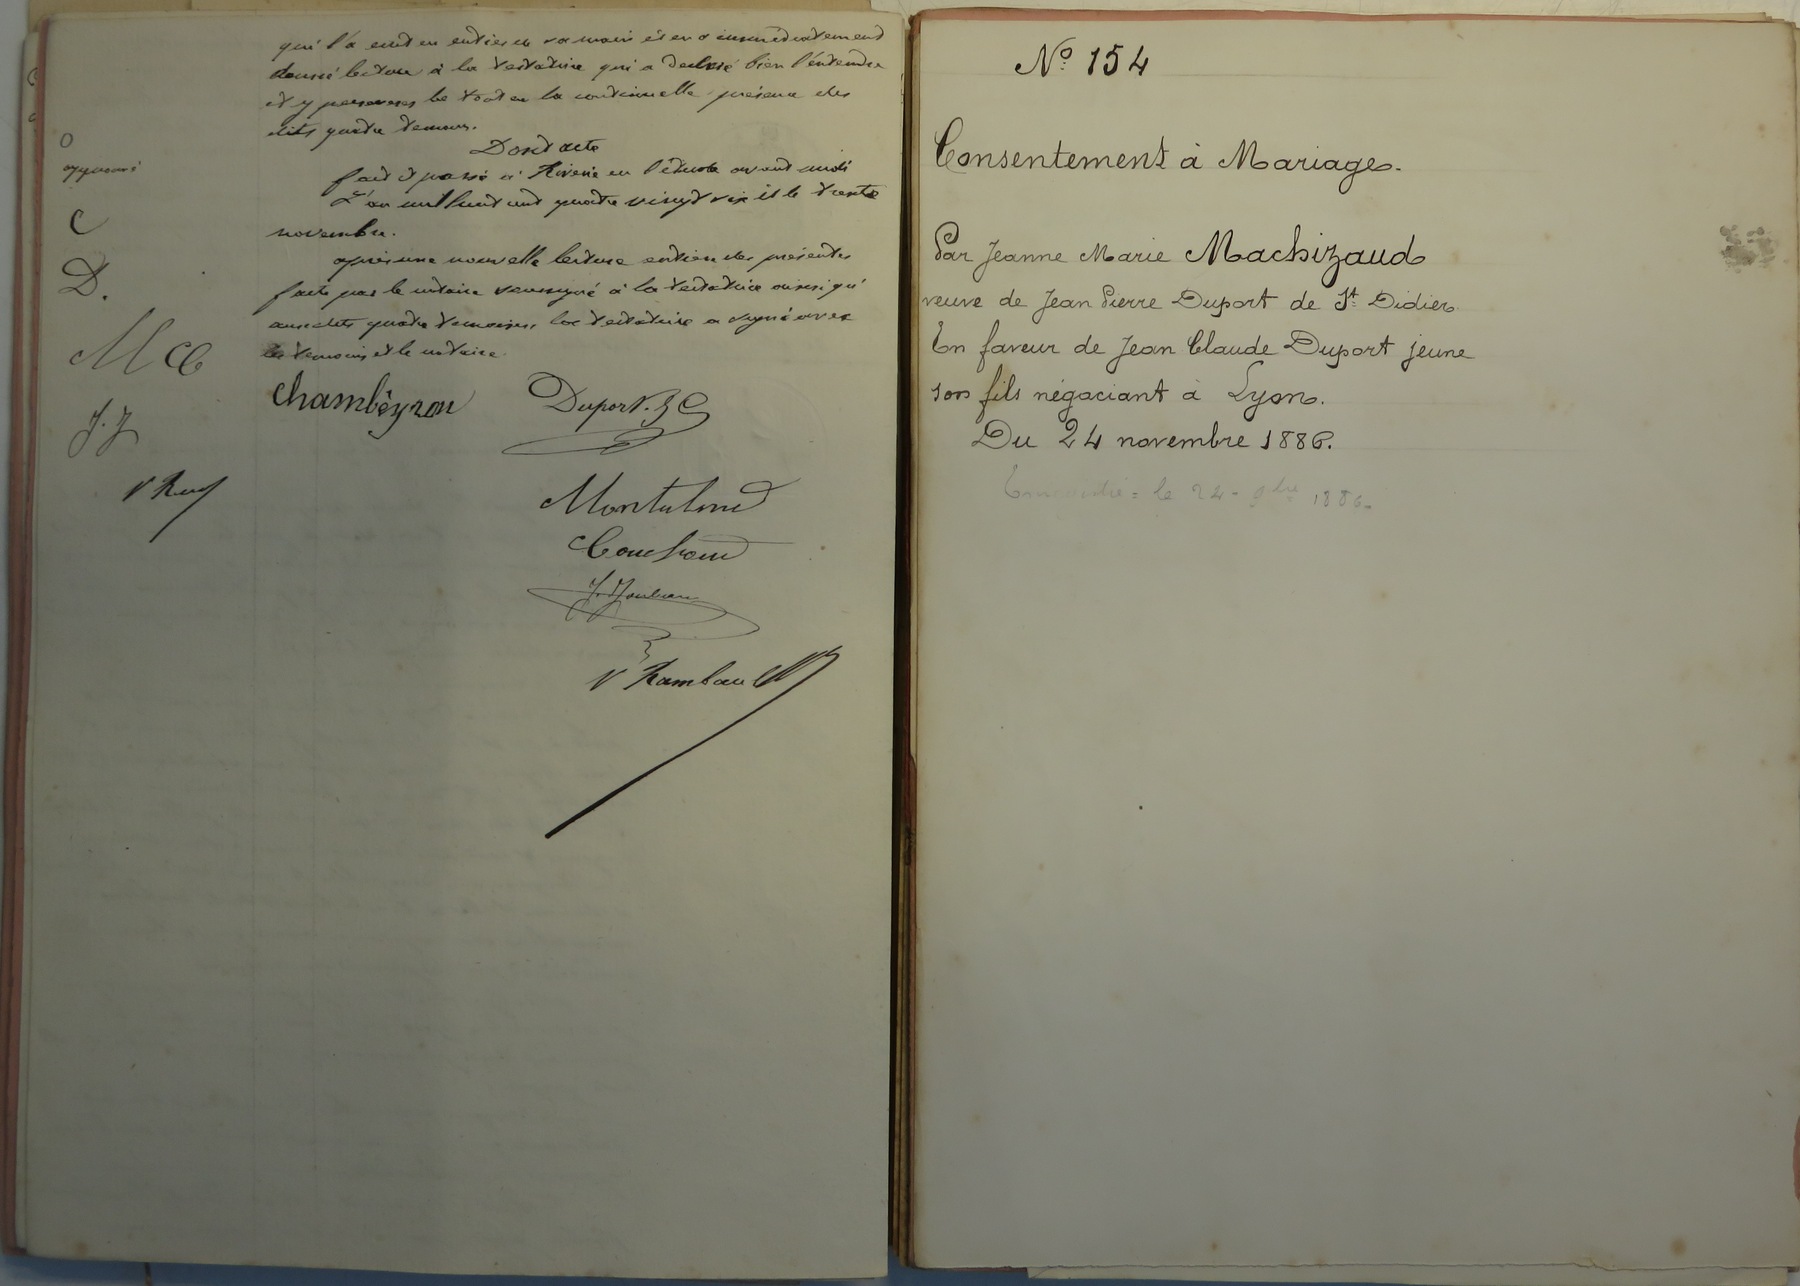 qui l'a écrit en entier de sa main et en a immédiatement
donné lecture à la testatrice qui a déclaré bien l'entendre
et y persévérer le tout en la continuelle présence des
dits quatre temoins.
Dont acte
fait et passé à Riverie en l'étude avant midi
L'an mil huit cent quatre vingt six et le trente
novembre.
après une nouvelle lecture entière des présentes
faite par le notaire soussigné à la testatrice ainsi qu'
aux dits quatre temoins, la testatrice a signé avec
les temoins et le notaire
C
D.
M CC
J. J
Chambeyron
Duport. J C
Couchoud
V Rambau
No 154
Consentement à Mariage.
Par Jeanne Marie Machizaud
veuve de Jean Pierre Duport de St Didier
En faveur de Jean Claude Duport jeune
son fils négociant à Lyon.
Du 24 novembre 1886.
le 24 - 9bre 1886.